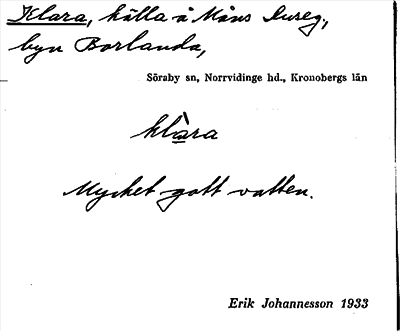 Klara, källa å Måns Sureg.,
byn Borlanda,
Söraby sn, Norrvidinge hd., Kronobergs län
klàra
Mycket gott vatten.
Erik Johannesson 1933